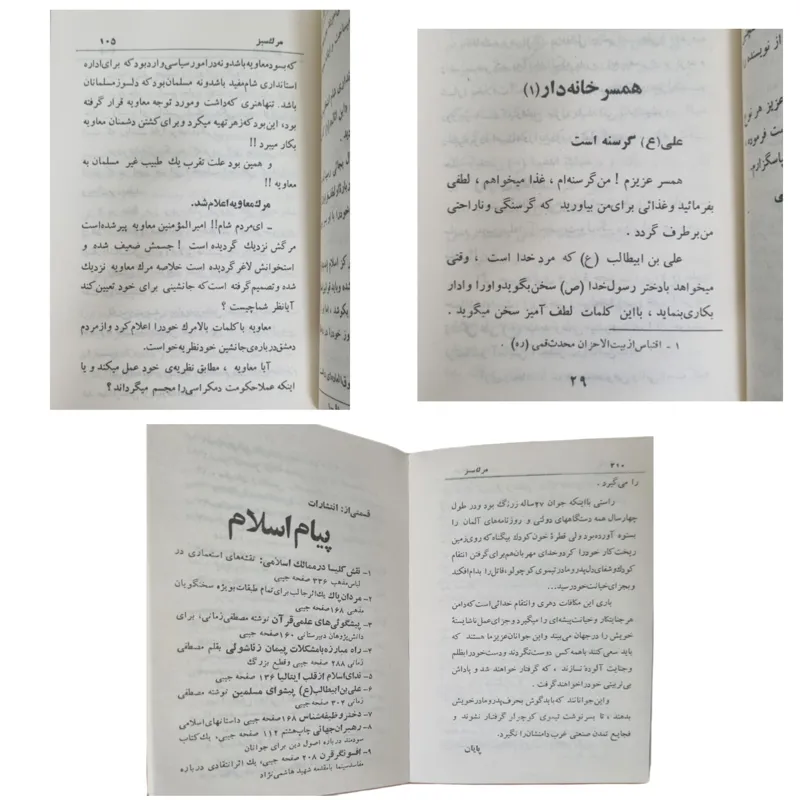 مرگ سبز ۱۰۵
که بسود معاویه باشد و نه در امور سیاسی وارد بود که برای اداره
استانداری شام مفید باشد و نه مسلمان بود که دلسوز مسلمانان
باشد. تنها هنری که داشت و مورد توجه معاویه قرار گرفته
بود، این بود که زهر تهیه میکرد و برای کشتن دشمنان معاویه
بکار میبرد !!
و همین بود علت تقرب یك طبیب غیر مسلمان به
معاویه !!
مرگ معاویه اعلام شد.
ـ ای مردم شام!! امیرالمؤمنین معاویه پیر شده است
مرگش نزدیك گردیده است ! جسمش ضعیف شده و
استخوانش لاغر گردیده است خلاصه مرگ معاویه نزدیك
شده و تصمیم گرفته است که جانشینی برای خود تعیین کند
آیا نظر شما چیست ؟
معاویه با کلمات بالا مرگ خود را اعلام کرد و از مردم
دمشق درباره‌ی جانشین خود نظریه خواست.
آیا معاویه ، مطابق نظریه‌ی خود عمل میکند و یا
اینکه عملا حکومت دمکراسی را مجسم میگرداند ؟
همسر خانه‌دار (۱)
علی (ع) گرسنه است
همسر عزیزم ! من گرسنه‌ام ، غذا میخواهم ، لطفی
بفرمائید و غذائی برای من بیاورید که گرسنگی و ناراحتی
من برطرف گردد .
علی بن ابیطالب (ع) که مرد خدا است ، وقتی
میخواهد با دختر رسول خدا (ص) سخن بگوید و او را وادار
بکاری بنماید ، با این کلمات لطف آمیز سخن میگوید .
۱ ـ اقتباس از بیت الاحزان محدث قمی (ره) .
۲۹
قسمتی از : انتشارات
پیام اسلام
۱ـ نقش کلیسا در ممالك اسلامی: نقشه‌های استعماری در
لباس مذهب ۳۳۶ صفحه جیبی
۲ـ مردان پاك یك اثر جالب برای تمام طبقات بویژه سخنگویان
مذهبی ۱۶۸ صفحه جیبی
۳ـ پیشگوئی‌های علمی قرآن نوشته مصطفی زمانی، برای
دانش‌پژوهان دبیرستانی ۱۶۰ صفحه جیبی
۴ـ راه مبارزه با مشکلات پیمان زناشوئی بقلم مصطفی
زمانی ۲۸۸ صفحه جیبی وقطع بزرگ
۵ـ ندای اسلام از قلب ایتالیا ۱۳۶ صفحه جیبی
۶ـ علی بن ابیطالب(ع) پیشوای مسلمین نوشته مصطفی
زمانی ۳۰۲ صفحه جیبی
۷ـ دختر وظیفه‌شناس ۱۶۸ صفحه جیبی داستانهای اسلامی
۸ـ رهبران جهانی چاپ هشتم ۱۱۲ صفحه جیبی، یك کتاب
سودمند درباره اصول دین برای جوانان
۹ـ افسونگر قرن ۲۰۸ صفحه جیبی، یك اثر انتقادی درباره
مفاسد سینما با مقدمه شهید هاشمی‌نژاد
۲۱۰ مرگ سبز
را می‌گیرد .
راستی با اینکه جوان ۲۷ ساله زرنگ بود و در طول
چهار سال همه دستگاههای دولتی و روزنامه‌های آلمان را
بستوه آورده بود ولی قطرهٔ خون کودك بیگناه که روی زمین
ریخت کار خود را کرد و خدای مهربان هم برای گرفتن انتقام
کودك و شفای دل پدر و مادر تیموی کوچولو، قاتل را بدام افکند
و بجزای خیانت خود رسید...
باری این مکافات دهری و انتقام خدائی است که دامن
هر جنایتکار و خیانت پیشه‌ای را میگیرد و جزای عمل ناشایستهٔ
خویش را در جهان می‌بیند و این جوانان عزیز ما هستند که
باید سعی کنند با همه کس دوست نگردند و دست خود را بظلم
و جنایت آلوده نسازند ، که گرفتار خواهند شد و پاداش
بی‌تربیتی خود را خواهند گرفت .
و این جوانانند که باید گوش بحرف پدر و مادر خویش
بدهند ، تا بسرنوشت تیموی کوچولو گرفتار نشوند و
فجایع تمدن صنعتی غرب دامنشان را نگیرد.
پایان